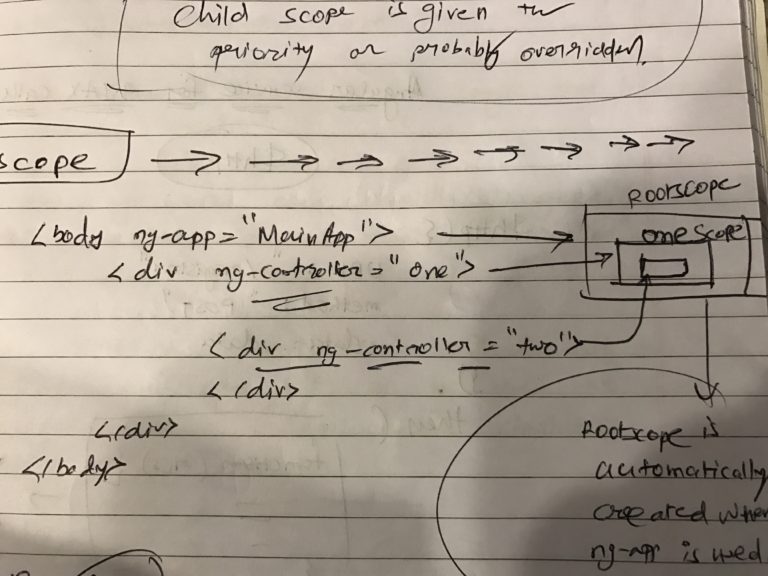 Child scope is given the
priority or probably overridden.
scope
<body ng-app="MainApp">
<div ng-controller="one">
<div ng-controller="two">
</div>
</div>
</body>
Rootscope
one scope
Rootscope is
automatically
created when
ng-app is used